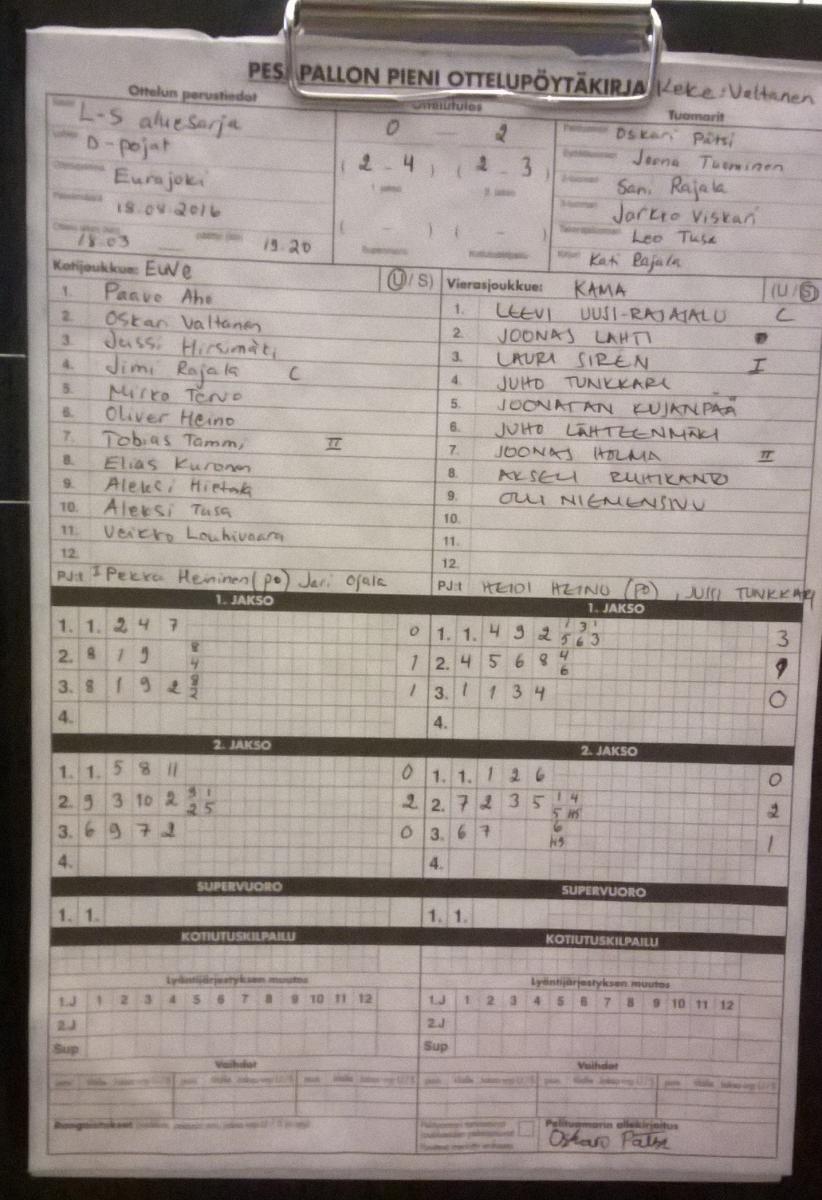 PESÄPALLON PIENI OTTELUPÖYTÄKIRJA Keke: Valtanen
Ottelun perustiedot
L-S aluesarja
D-pojat
Eurajoki
18.08.2016
18.03 19.20
Ottelutulos
0 2
(2 - 4) (2 - 3)
( - ) ( - )
Tuomarit
Oskari Pätsi
Joona Tuominen
Sani Rajala
Jarkko Viskari
Leo Tusa
Kati Rajala
Kotijoukkue: EuVe (U/S)
1. Paavo Aho
2. Oskari Valtanen
3. Jussi Hirsimäki
4. Jimi Rajala C
5. Mirko Tervo
6. Oliver Heino
7. Tobias Tammi II
8. Elias Kuronen
9. Aleksi Hietala
10. Aleksi Tusa
11. Veikko Louhivaara
12.
PJ:t I Pekka Heininen (po) Jari Ojala
Vierasjoukkue: KAMA (U/S)
1. LEEVI UUSI-RAJAJALU C
2. JOONAS LAHTI
3. LAURI SIREN I
4. JUHO TUNKKARI
5. JOONATAN KUJANPÄÄ
6. JUHO LÄHTEENMÄKI
7. JOONAS HOLMA II
8. AKSELI RUHKANTO
9. OLLI NIEMENSIVU
10.
11.
12.
PJ:t HEIDI HEINO (PO), JUSSI TUNKKARI
1. JAKSO
1. 1. 2 4 7 0
2. 8 1 9 8 4 1
3. 8 1 9 2 8 2 1
4.
1. JAKSO
1. 1. 4 9 2 1 5 3 6 1 3 3
2. 4 5 6 8 4 6
3. 1 1 3 4 0
4.
2. JAKSO
1. 1. 5 8 11 0
2. 9 3 10 2 9 2 1 5 2
3. 6 9 7 2 0
4.
2. JAKSO
1. 1. 1 2 6 0
2. 7 2 3 5 1 5 4 2
3. 6 7 6 1
4.
SUPERVUORO
1. 1.
SUPERVUORO
1. 1.
KOTIUTUSKILPAILU
KOTIUTUSKILPAILU
Lyöntijärjestyksen muutos
1.J 1 2 3 4 5 6 7 8 9 10 11 12
2.J
Sup
Lyöntijärjestyksen muutos
1.J 1 2 3 4 5 6 7 8 9 10 11 12
2.J
Sup
Vaihdot
Vaihdot
Rangaistukset
Pelituomarin allekirjoitus